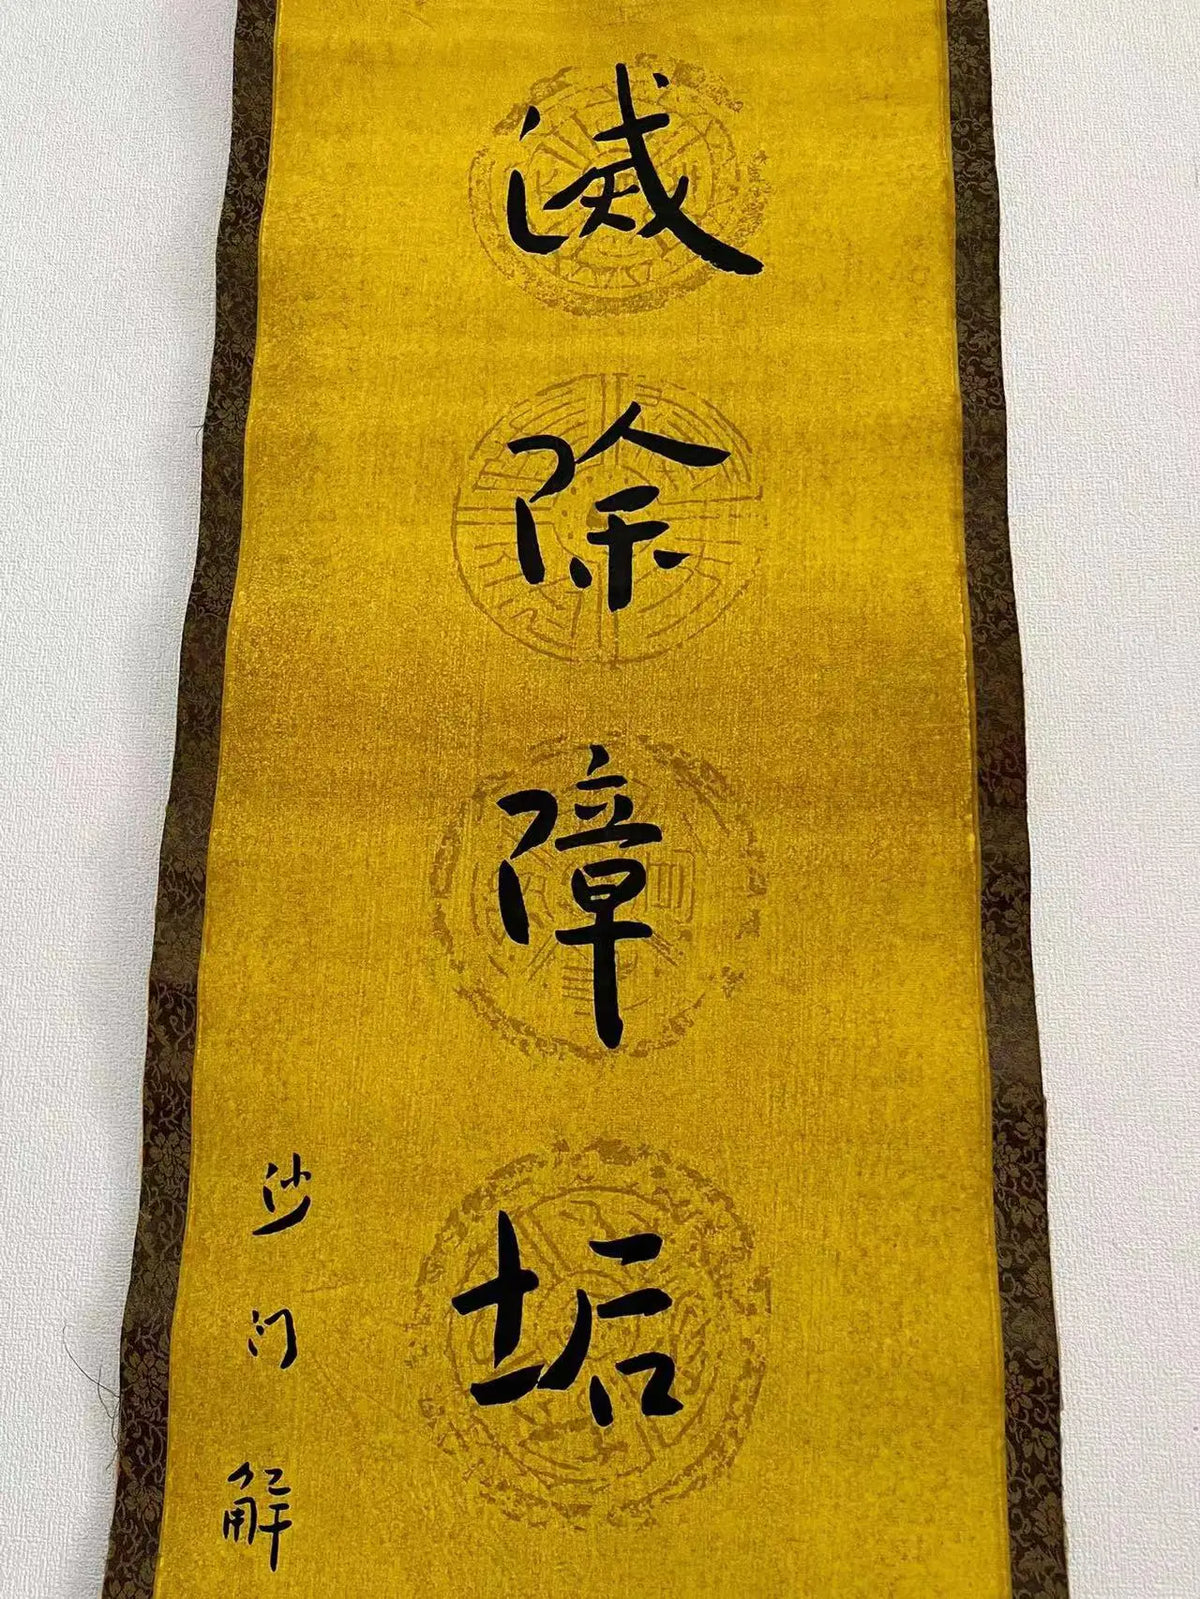 滅除障垢
沙门解